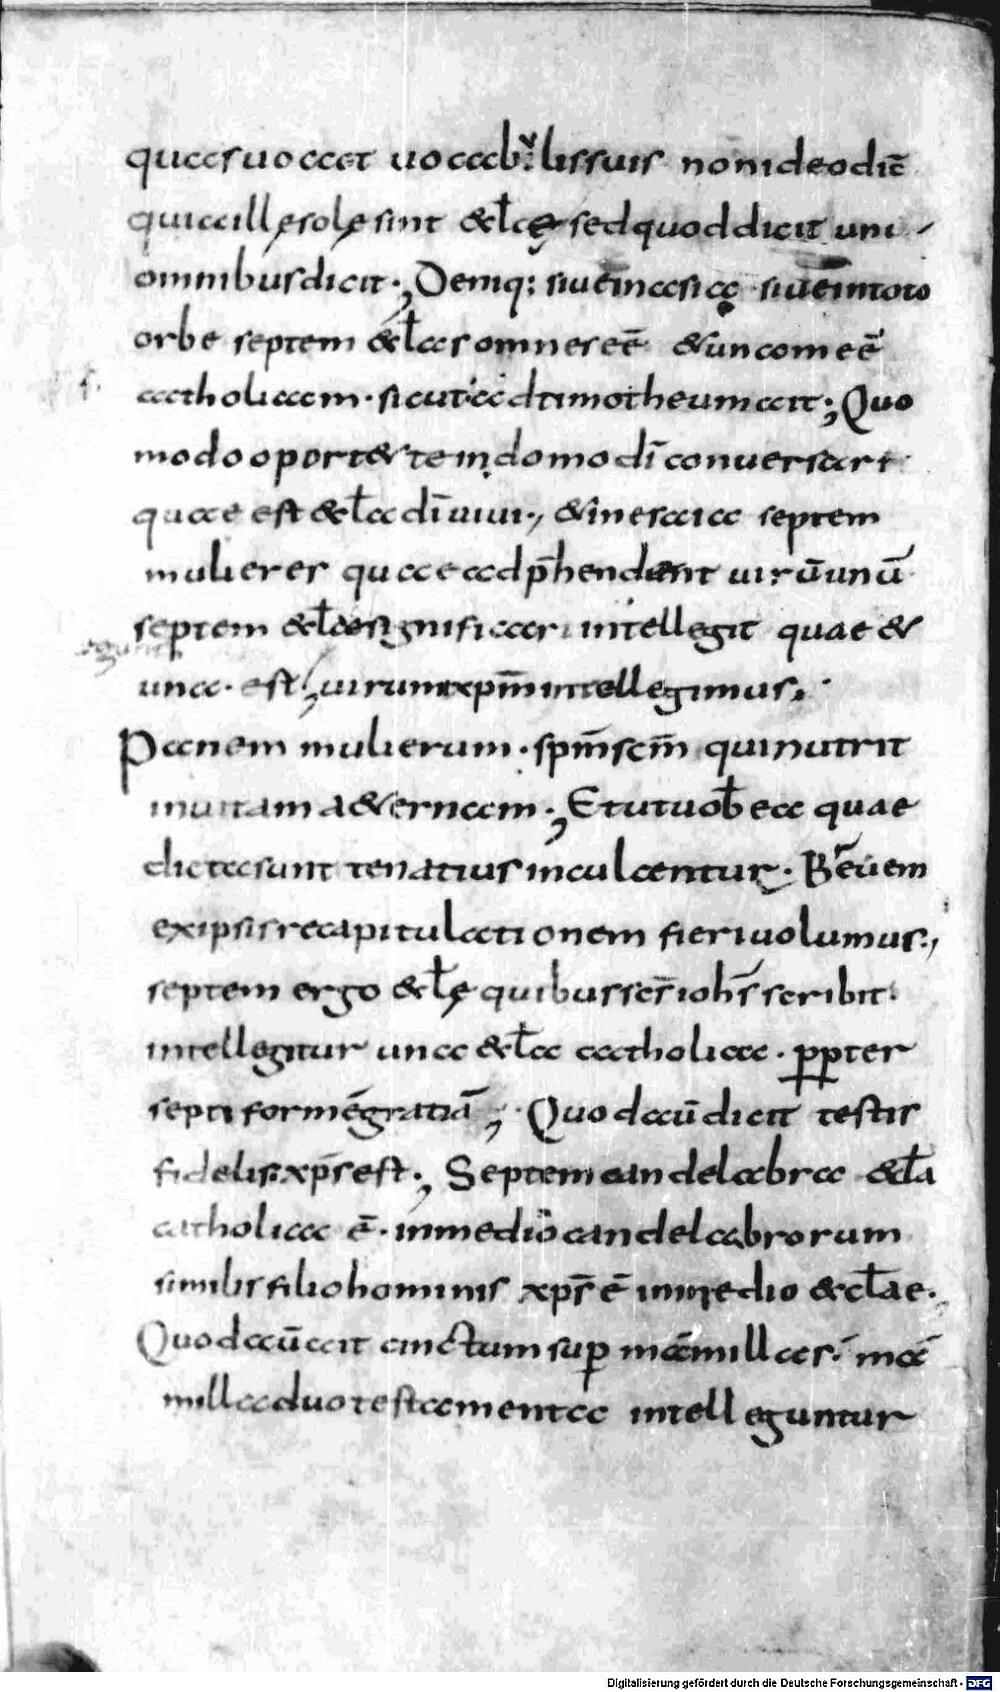 quas uocat uocab:lis suis non ideo dic̄
quia illę sole sint &l̄cę sed quod dicit uni
omnibus dicit·; Deniq: siue in asia siue in toto
orbe septem &l̄as omnes eē & unam eē
catholicam· sicut ad timotheum ait; Quo
modo oport& te in domo dī conuersari
quae est &l̄a dī uiui·, & in esaia septem
mulieres quae adp̄hendent uirū unū
septem &l̄aes significari intellegit quae &
una· est; uirum xp̄m intellegimus·
Panem mulierum· sp̄m sc̄m qui nutrit
in uitam a&ernam·; Et ut uob̄ ea quae
dicta sunt tenatius inculcentur· Breuem
ex ipsis recapitulationem fieri uolumus·,
septem ergo &l̄ę quibus sc̄s ioh̄s scribit·
intellegitur una &l̄a catholica· ppter
septiformē gratiā; Quod aū dicit testis
fidelis xp̄s est·; Septem candelabra &cl̄a
catholica ē· in medio candelabrorum
similis filio hominis xp̄s ē in medio &cl̄ae·
Quod aū ait cinctum sup māmillas· mā
milla duo testamenta intelleguntur
Digitalisierung gefördert durch die Deutsche Forschungsgemeinschaft - DFG